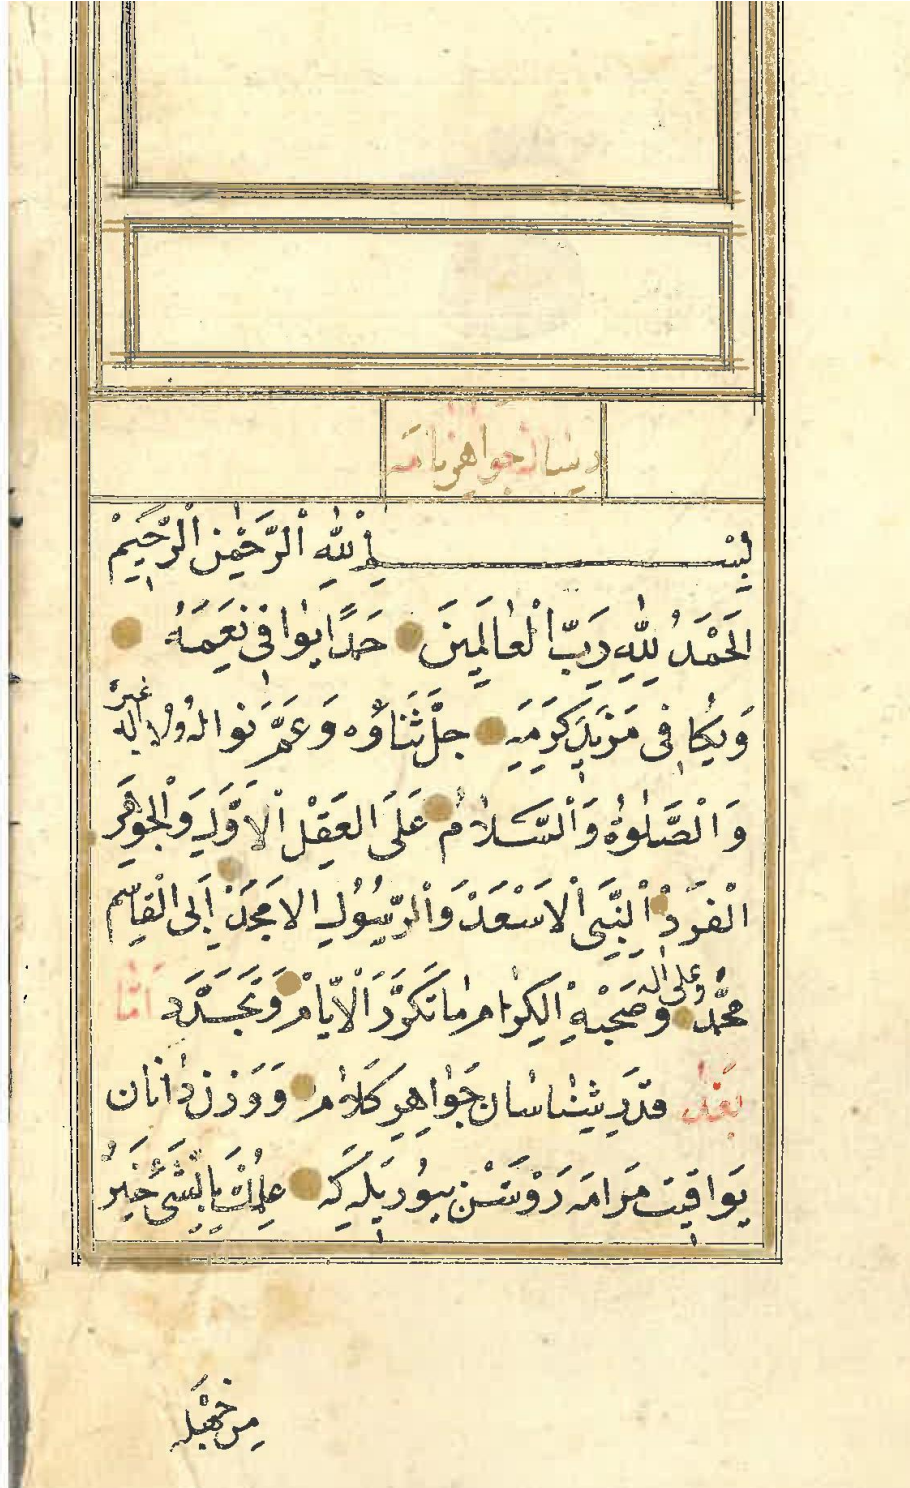 جواهرنامه
بِسْمِ اللّٰهِ الرَّحْمٰنِ الرَّحِيمْ
اَلحَمْدُ لِلّٰهِ رَبِّ الْعٰالَمِينَ حَمدًا يوٰافى نِعَمَهُ
وَيُكافى مَزيدَ كَرَمِهِ جَلَّ ثَنَاؤُه وَعَمَّ نَوالهُ ولا اِله غيرهُ
وَالْصَّلوٰةُ وَالْسَّلامُ عَلَى العَقْلِ الْاَوَّلِ وَالْجَوهَرِ
الْفَردِ اَلنَّبىِّ الْاَسْعَدْ وَالْرَّسُولِ الامَجَدْ اَبى الْقاسِم
مُحَمَّدٍ وعلى اله وَصَحْبهِ الْكِرٰام مٰا تَكَرَّرَ الْاَيّامْ وَتَجَدَّدَ اَمّا
بَعْدُ قدَر شِنٰاسان جَوٰاهِر كَلام وَ وَزن دٰانان
يَواقيت مَرامَه رَوْشَنْ بيورَيله كَه عِلْمُ الشَّئ خَيرٌ
مِن جَهْله